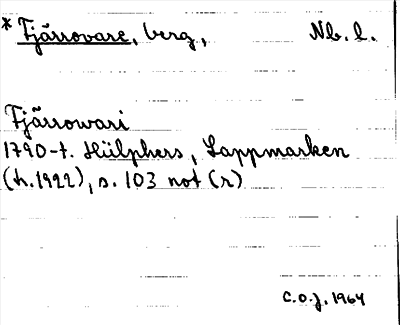 * Fjärrovare, berg, Nb. l.
Fjärrowari
1790-t. Hülphers, Lappmarken
(tr. 1922), s. 103 not (r)
C.O.J. 1964